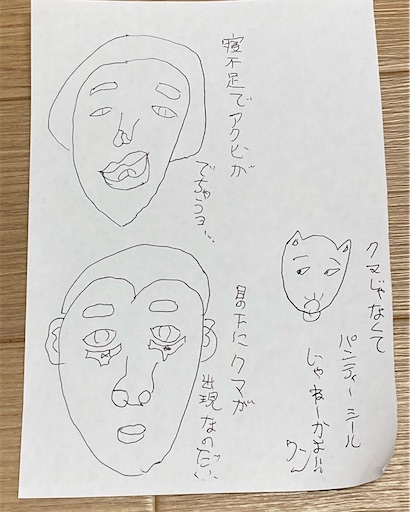 寝不足でアクビが
でちゃうヨ…
目の下にクマが
出現なのだ…
クマじゃなくて
パンティーシール
じゃねーかよ!!
ワン